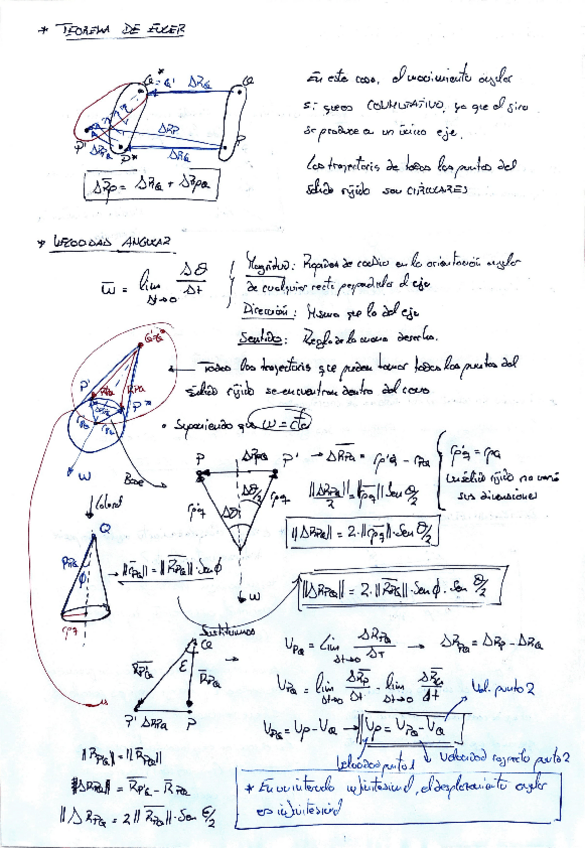 * TEOREMA DE EULER
Q*=Q' ΔR̄Q Q
ΔRp
P' ΔRPQ P* ΔRQ P
ΔR̄p = ΔR̄Q + ΔR̄PQ
En este caso, el movimiento angular
sí que es CONMUTATIVO, ya que el giro
se produce en un único eje.
Las trayectorias de todos los puntos del
sólido rígido son CIRCULARES
* VELOCIDAD ANGULAR
ω̄ = lim Δt→0 Δθ̄/Δt
Magnitud: Rapidez de cambio en la orientación angular
de cualquier recta perpendicular al eje
Dirección: Misma que la del eje
Sentido: Regla de la mano derecha.
Todas las trayectorias que pueden tomar todos los puntos del
sólido rígido se encuentran dentro del cono
• Suponiendo que ω = cte
P' P* ω
Base
P ΔRPQ P' → ΔR̄PQ = r'PQ - rPQ
r'PQ = rPQ
un sólido rígido no varía
sus dimensiones
Δθ Δθ/2
||ΔR̄PQ||/2 = ||r̄PQ|| Sen θ/2
||ΔR̄PQ|| = 2·||r̄PQ||·Sen θ/2
ω
Lateral
Q
RPQ φ
rPQ
→ ||r̄PQ|| = ||R̄PQ|| Senφ
||ΔR̄PQ|| = 2·||R̄PQ||·Senφ·Sen θ/2
Sustituimos
Q
R̄'PQ ε R̄PQ
P' ΔRPQ P
VPQ = lim Δt→0 ΔR̄PQ/ΔT → ΔRPQ = ΔRP - ΔRQ
VPQ = lim Δt→0 ΔR̄P/Δt - lim Δt→0 ΔR̄Q/Δt
Vel. punto 2
VPQ = VP - VQ → ||VP = VPQ - VQ
Velocidad punto 1
Velocidad respecto punto 2
||R'PQ|| = ||R̄PQ||
||ΔRPQ|| = R̄P'Q - R̄PQ
||ΔRPQ|| = 2||R̄PQ||·Sen ε/2
* En un intervalo infinitesimal, el desplazamiento angular
es infinitesimal